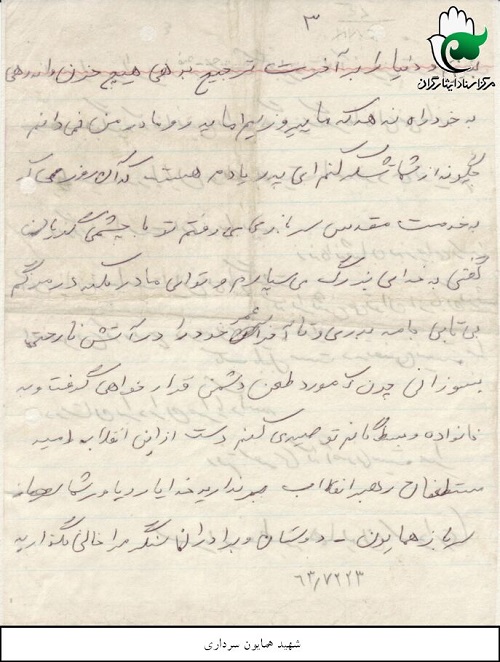 ۳
مرکز اسناد ایثارگران
و دنیا را بر آخرت ترجیح ندهی هیچ حزن و اندوهی
به خود راه ندهد که ما پیروزیم اما پدر و مادر من نمی دانم
چگونه از شما تشکر کنم ای پدر یادم هست که آن روزی که
بخدمت مقدس سربازی می رفتم تو با چشمی گریان
گفتی به خدای بزرگ می سپارم و توای مادر مکند در مرگم
بی تابی جامه بدری و تا آخر عمر خود را در آتش ناراحتی
بسوزانی چون که مورد طعن دشمن قرار خواهی گرفت و به
خانواده و بستگانم توصیه می کنم دست از این انقلاب امید
مستضعفان رهبر انقلاب برندارید خدا یار و یاور شما
سرباز همایون - دوستان و برادرانم سنگر مرا خالی نگذارید
۶۳٫۷۲۲۳
شهید همایون سرداری